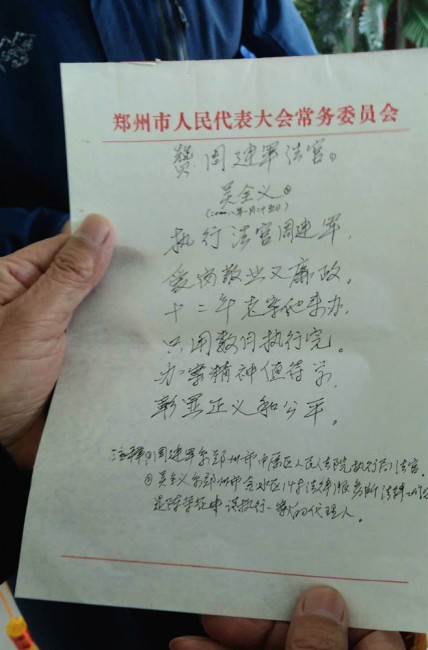 郑州市人民代表大会常务委员会
赞周建军法官①
吴全义②
执行法官周建军，
爱岗敬业又廉政。
十二年老案他来办，
只用数月执行完。
办案精神值得学，
彰显正义和公平。
注释①周建军系郑州市中原区人民法院执行局法官。
②吴全义系郑州市金水区 法律服务所法律工作
是陈 申请执行一案的代理人。